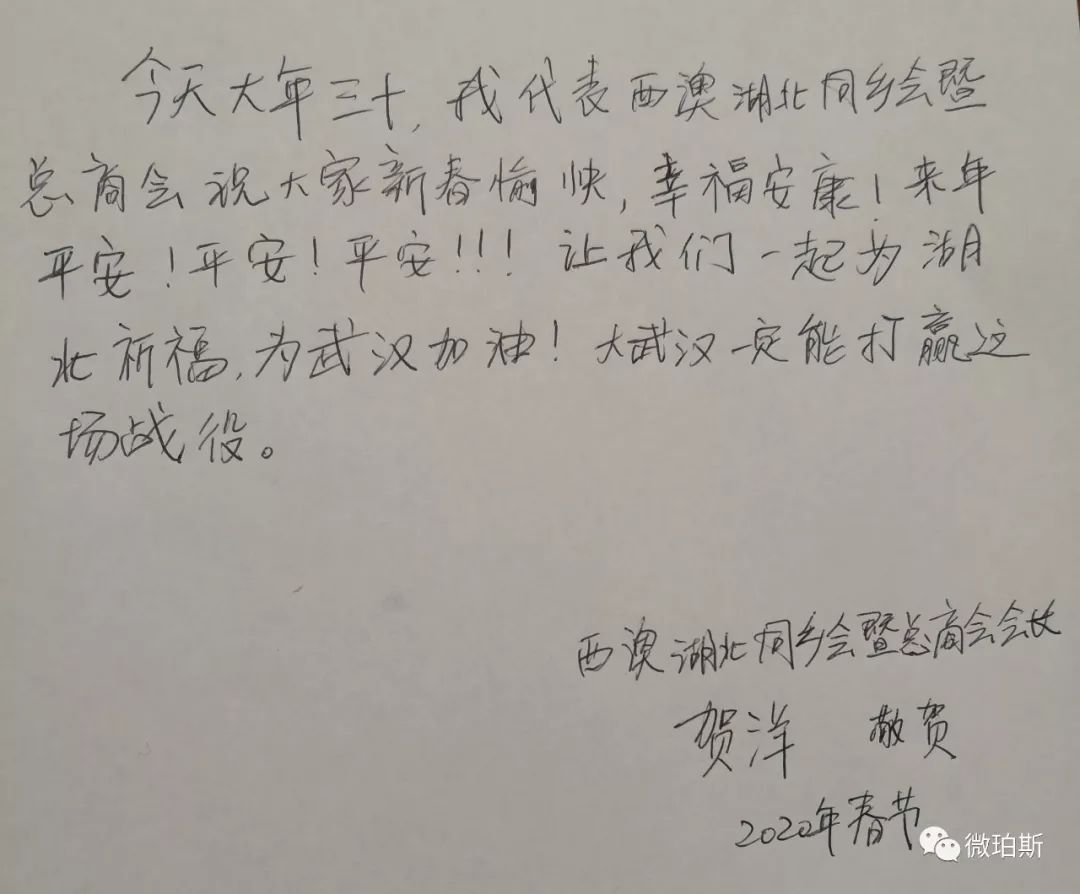 今天大年三十，我代表西澳湖北同乡会暨
总商会祝大家新春愉快，幸福安康！来年
平安！平安！平安！！！让我们一起为湖
北祈福，为武汉加油！大武汉一定能打赢这
场战役。
西澳湖北同乡会暨总商会会长
贺洋 敬贺
2020年春节
微珀斯